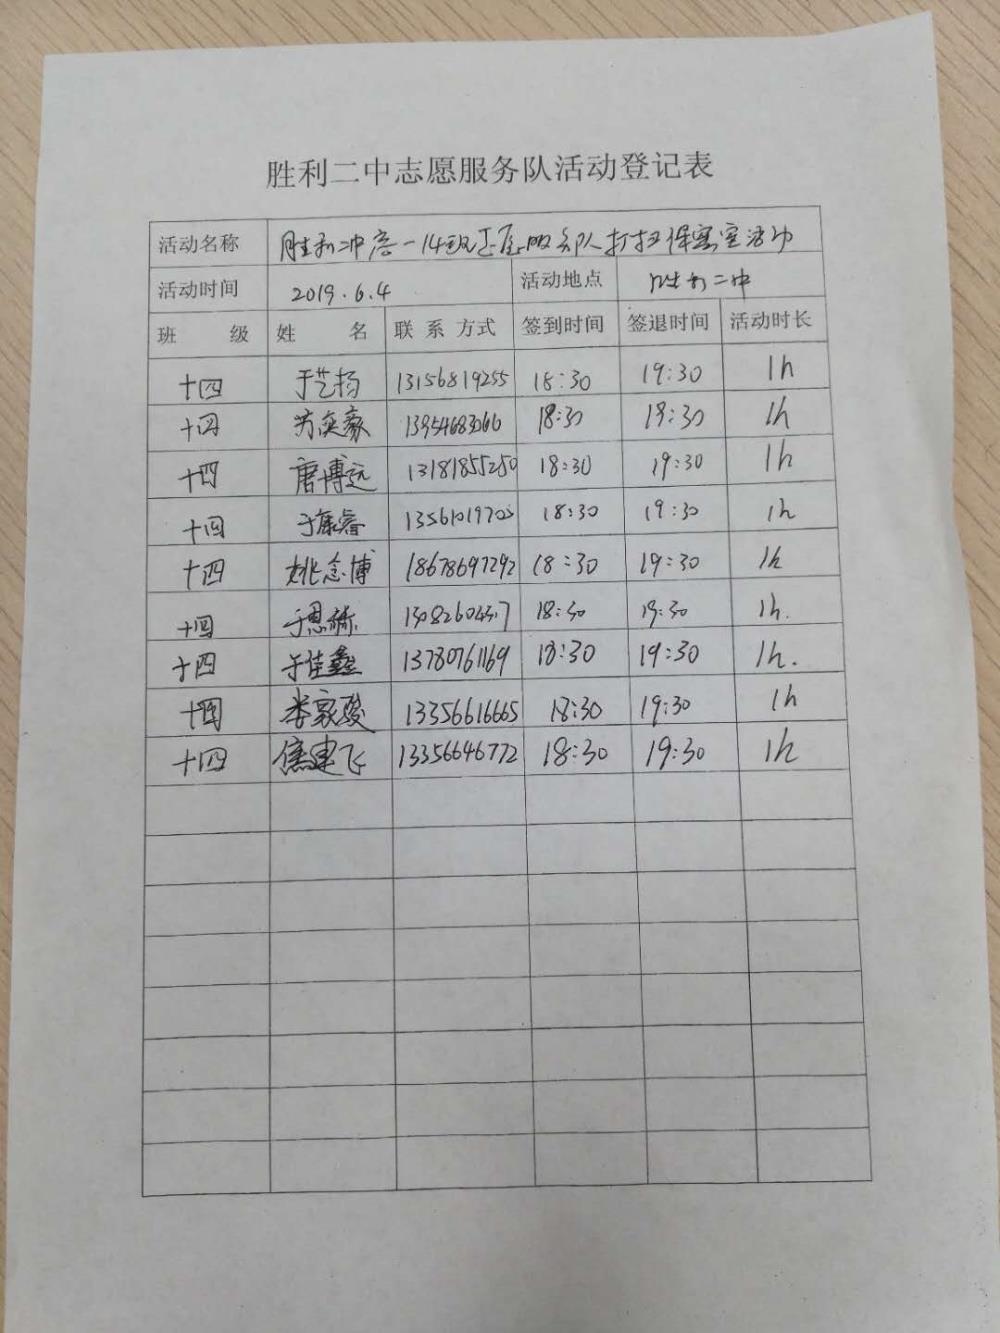 胜利二中志愿服务队活动登记表
活动名称 胜利二中高一14班志愿服务队打扫保密室活动
活动时间 2019.6.4 活动地点 胜利二中
班 级 姓 名 联系方式 签到时间 签退时间 活动时长
十四 于艺扬 13156819255 18:30 19:30 1h
十四 奕豪 18:30 19:30 1h
十四 唐博远 13181855250 18:30 19:30 1h
十四 于康睿 18:30 19:30 1h
十四 姚念博 18678697292 18:30 19:30 1h
十四 于恩 18:30 19:30 1h.
十四 于佳鑫 13780761169 18:30 19:30 1h.
十四 娄家骏 13356616665 18:30 19:30 1h
十四 焦建飞 13356646772 18:30 19:30 1h